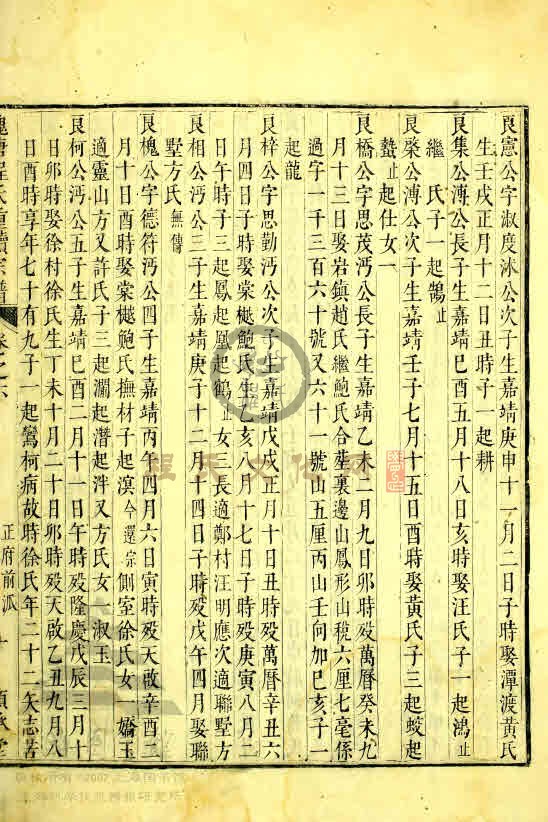 良憲公字淑度沭公次子生嘉靖庚申十一月二日子時娶潭渡黃氏
生壬戌正月十二日丑時子一起耕
良集公溥公長子生嘉靖己酉五月十八日亥時娶汪氏子一起鴻止
繼 氏子一起鵠止
良榮公溥公次子生嘉靖壬子七月十五日酉時娶黃氏子三起蛟起
蟄止起仕女一
良橋公字思茂沔公長子生嘉靖乙未二月九日卯時歿萬曆癸未九
月十三日娶岩鎮趙氏繼鮑氏合塟裏邊山鳳形山稅六厘七毫係
過字一千三百六十號又六十一號山五厘丙山壬向加巳亥子一
起龍
良梓公字思勤沔公次子生嘉靖戊戌正月十日丑時歿萬曆辛丑六
月四日子時娶棠樾鮑氏生乙亥八月十七日子時歿庚寅八月二
日午時子三起鳳起凰起鶴止女三長適鄭村汪明應次適聯墅方
良相公沔公三子生嘉靖庚子十二月十四日子時歿戊午四月娶聯
墅方氏無傳
良槐公字德符沔公四子生嘉靖丙午四月六日寅時歿天啟辛酉二
月十日酉時娶棠樾鮑氏撫材子起溟今還宗側室徐氏女一嬌玉
適靈山方又許氏子三起瀾起潛起泮又方氏女 淑玉
良柯公沔公五子生嘉靖己酉二月十一日午時歿隆慶戊辰三月十
日卯時娶徐村徐氏生丁未十月二十日卯時歿天啟乙丑九月八
日酉時享年七十有九子一起鸞柯病故時徐氏年二十二矢志苦
槐塘程氏重續宗譜
卷之六
正府前派